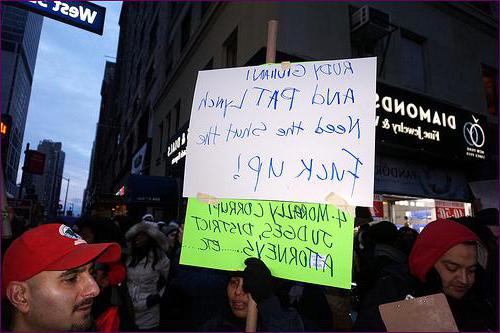 West S
RUDY GIULIANI
AND PAT Lynch
Need the Shut the
FUCK UP!
4-MORALLY CORRUPT
JUDGES, DISTRICT
ATTORNEYS, ETC......
DIAMONDS
Fine Jewelry & W
PANDORA